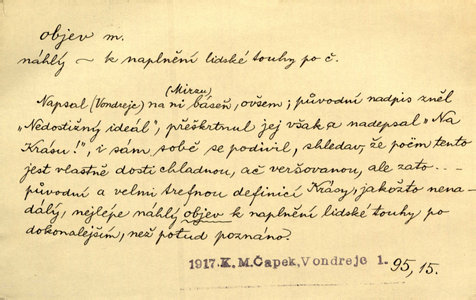 objev m.
náhlý ~ k naplnění lidské touhy po č.
(Mirzu)
Napsal (Vondrejc) na ni báseň, ovšem; původní nadpis zněl
„Nedostižný ideál“, přeškrtnul jej však a nadepsal „Na
Krásu!“, i sám sobě se podivil, shledav, že poëm tento
jest vlastně dosti chladnou, ač veršovanou, ale zato....
původní a velmi trefnou definicí Krásy, jakožto nena-
dálý, nejlépe náhlý objev k naplnění lidské touhy po
dokonalejším, než potud poznáno.
1917 K.M.Čapek,Vondrejc 1. 95,15.